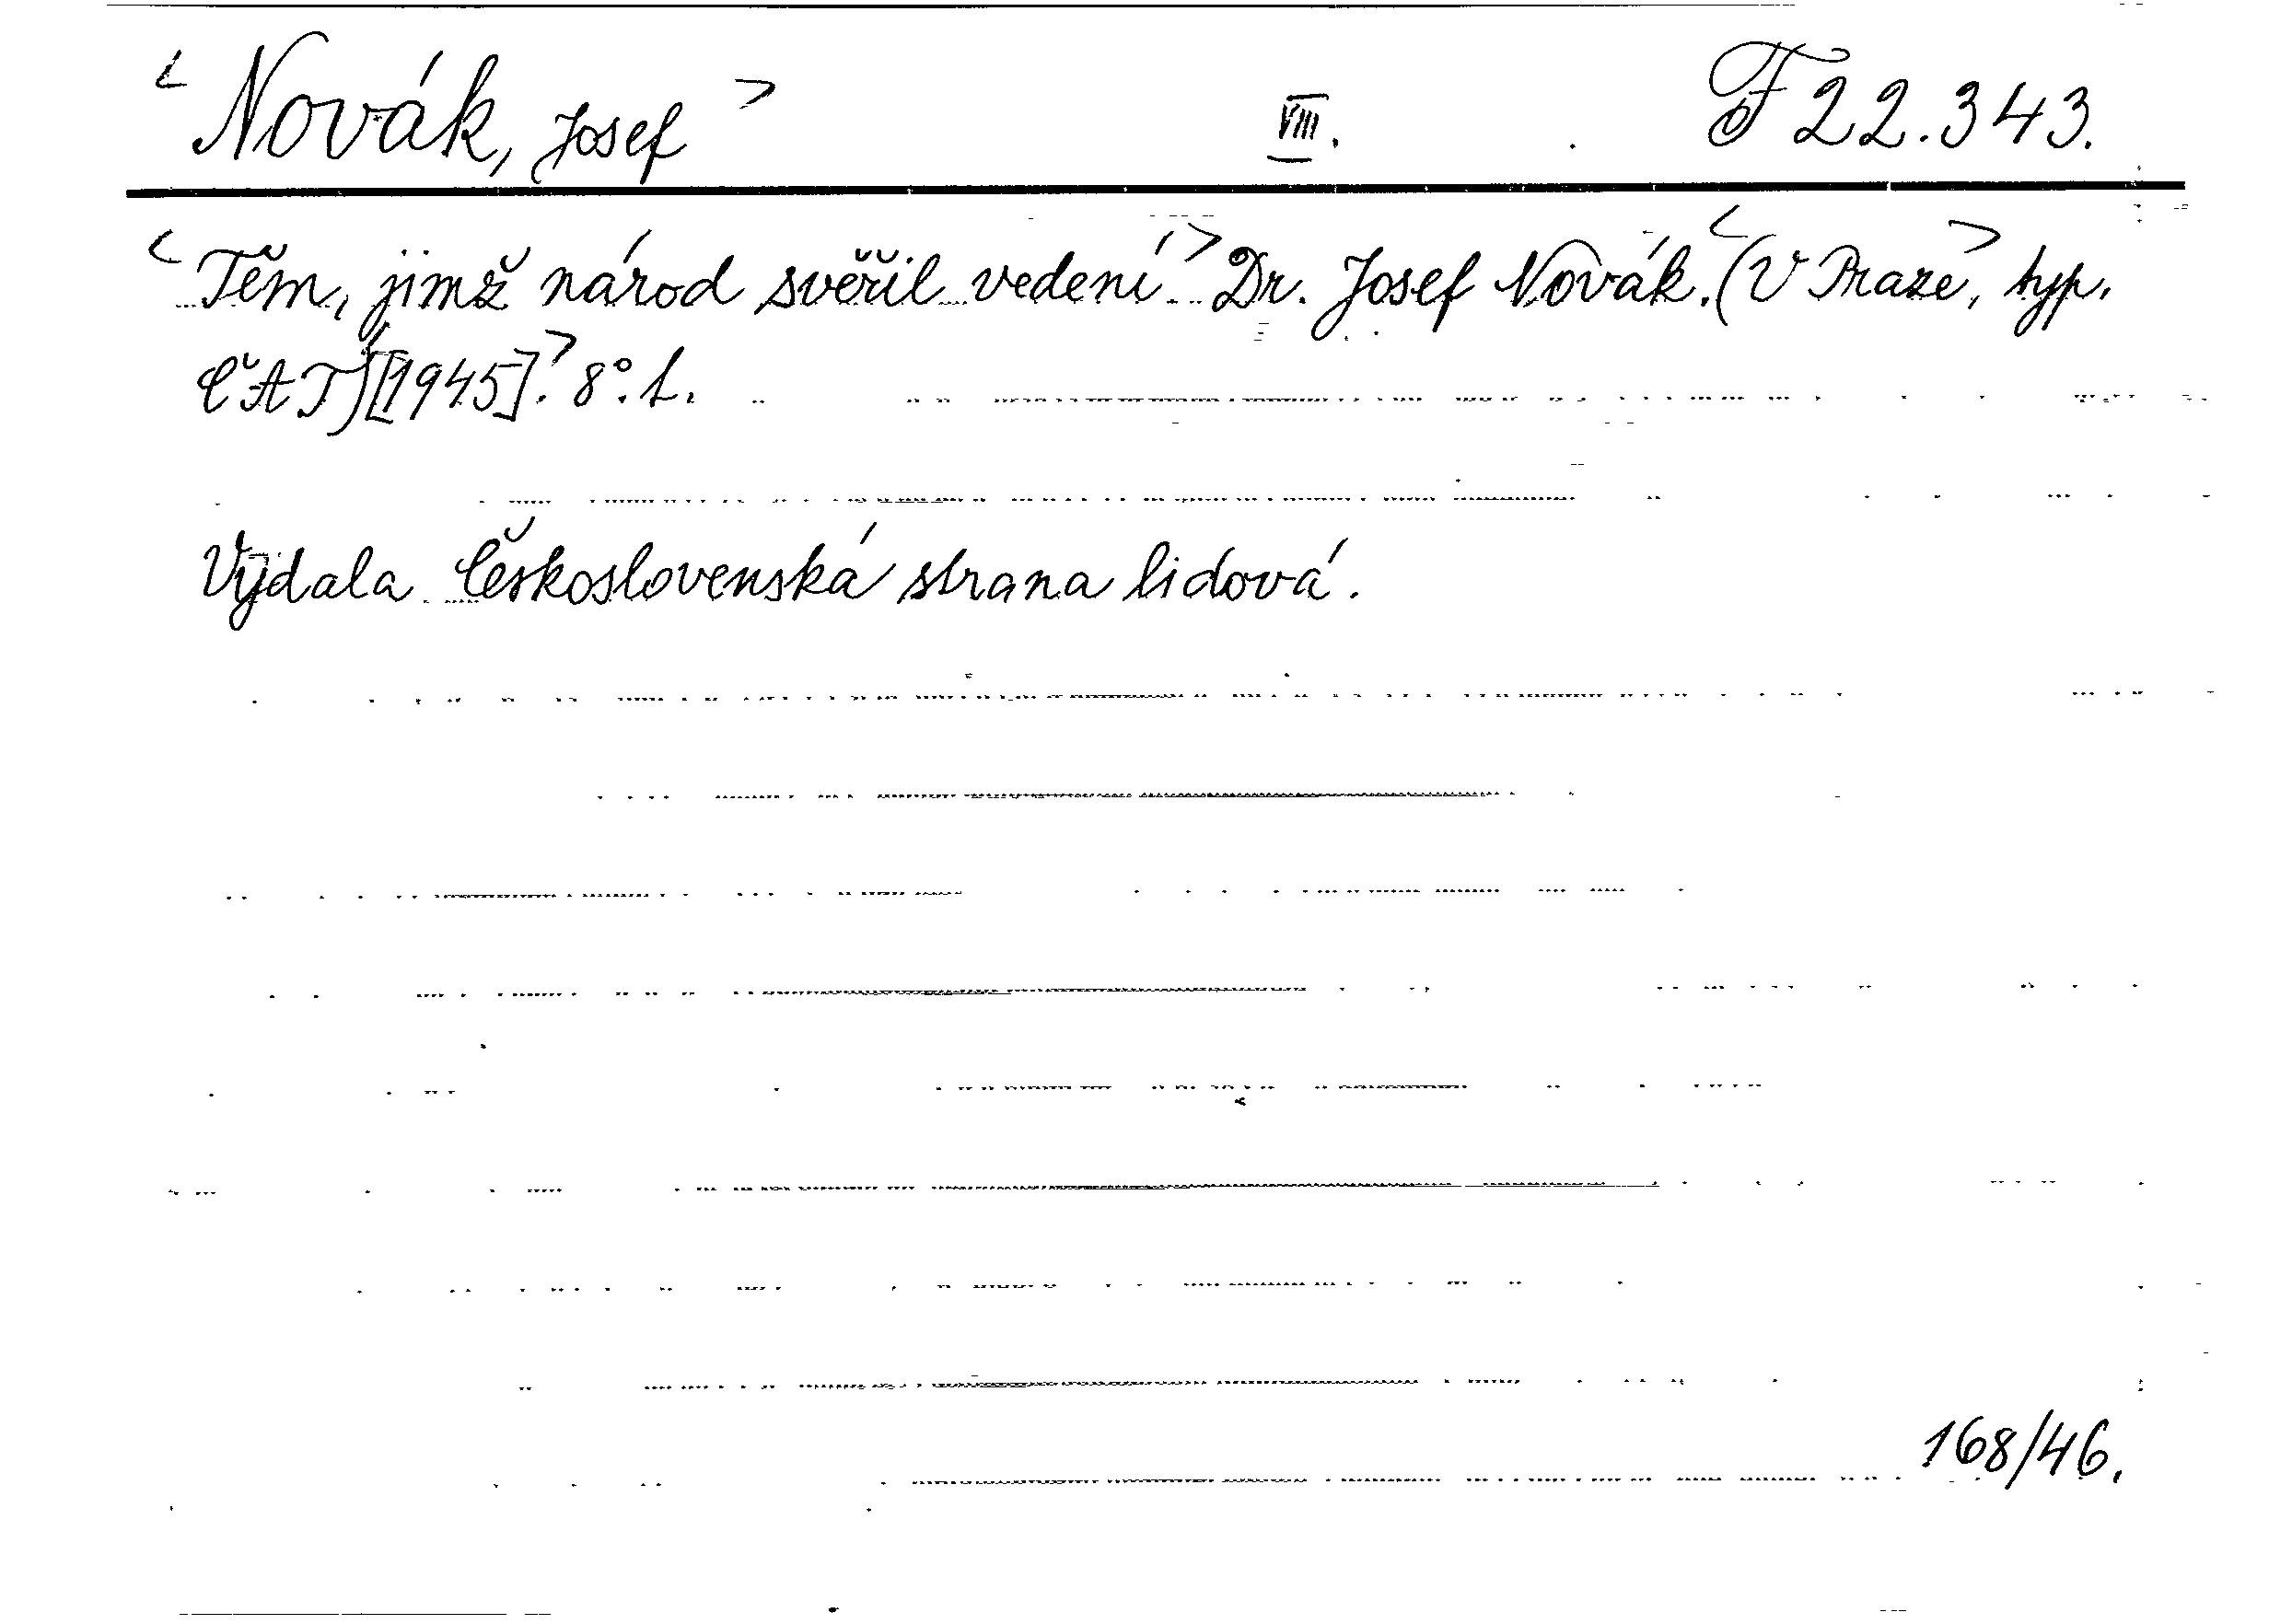 <Novák, Josef> VIII. F 22.343.
<Těm, jimž národ svěřil vedení.> Dr. Josef Novák. <(V Praze>, typ.
ČAT) [1945].> 8°. L.
Vydala Československá strana lidová.
168/46.